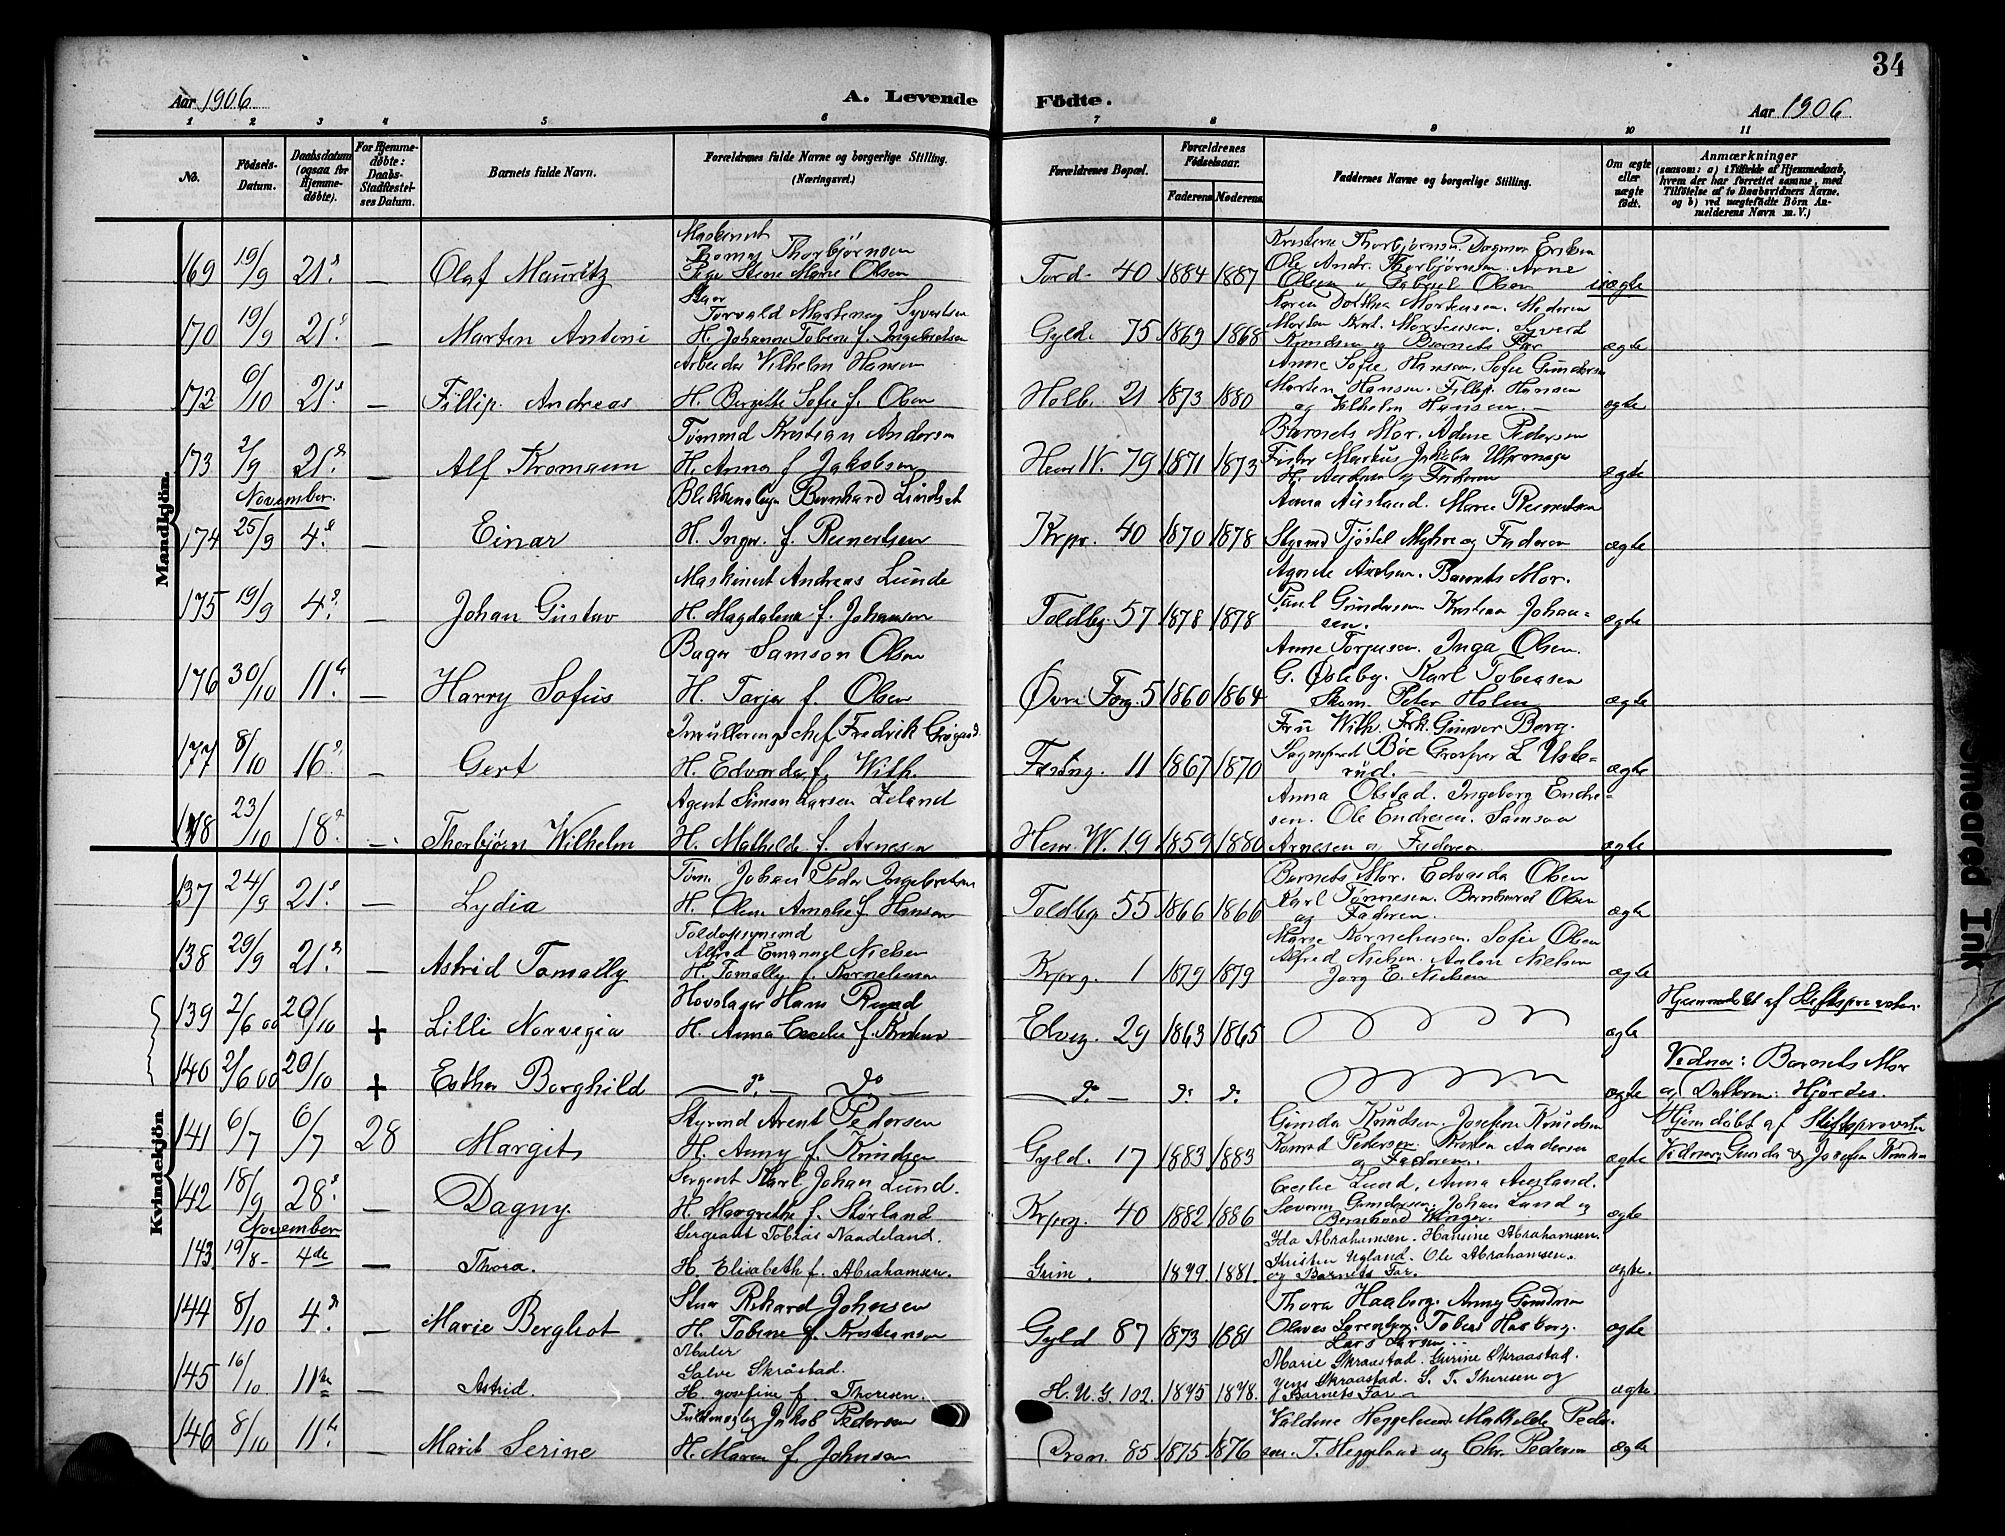 34
Aar 1906 A. Levende Födte. Aar 1906
1 2 3 4 5 6 7 8 9 10 11
No. Födsels-Datum. Daabsdatum (ogsaa for Hjemme-döbte). For Hjemme-döbte: Daabs-Stadfæstel-ses Datum. Barnets fulde Navn. Forældrenes fulde Navne og borgerlige Stilling. (Næringsvei.) Forældrenes Bopæl. Forældrenes Födselsaar. Faderens Moderens Faddernes Navne og borgerlige Stilling. Om ægte eller uægte födt. Anmærkninger (saasom: a) i Tilfælde af Hjemmedaab, hvem der har forrettet samme, med Tilföielse af to Daabsvidners Navne, og b) ved uægtefödte Börn An-melderens Navn m. V.)
Mandkjön.
Maskinist
Thorbjørnsen
169 19/9 21 — Olaf Mauritz Pige Stene Marie Olsen Tord. 40 1884 1887 Olsen og Gabriel Olsen uægte
Torvald Martinius Syvertsen Karen Dorthea Mortensen. Moderen
170 19/9 21 — Marten Antoni H. Johanne Tobine f. Ingebretsen Gyld. 75 1869 1868 Knudsen og Barnets Far ægte
Arbeider Vilhelm Hansen Anne Sofie Hansen, Sofie Gundersen
Morten Hansen. Fillip Hansen
172 6/10 21 — Fillip Andreas H. Bergitte Sofie f. Olsen Holb. 21 1873 1880 og Vilhelm Hansen. — ægte
Tømmd Kristian Andersen Barnets Mor. Adine Pedersen
173 2/9 21 — Alf Kromann H. Anna f. Jakobsen Henr W. 79 1871 1873 H. Andersen og Faderen ægte
November. Bernhard Lindset Anna Ausland. Marie Reinertsen
174 25/9 4 — Einar H. Inger f. Reinertsen Krpr. 40 1870 1878 Styrmd Tjøstel Myhre og Faderen ægte
Maskinist Andreas Lunde Barnets Mor.
175 19/9 4 — Johan Gustav H. Magdalena f. Johansen Toldbg. 57 1878 1878 Paul Gundersen Kristian Johan=
sen. ægte
Bager Samson Olsen Anne Torjusen. Inga Olsen.
G. Østeby. Karl Tobiasen
176 30/10 11 — Harry Sofus H. Tarja f. Olsen Øvre Torg. 5 1860 1864 Skom. Peter Holm ægte
Fredrik Frü With. Frk. Gunvor Berg.
177 8/10 16 — Gert H. Edvarda f. With. Fæstng. 11 1867 1870 ægte
Agent Simon Larsen Zeland Anna Olstad. Ingeborg Endre=
sen. Ole Endresen. Samson
178 23/10 18 — Thorbjørn Wilhelm H. Mathilde f. Arnesen Henr. W. 19 1859 1880 Arnesen og Faderen ægte
Kvindekjön
Tøm. Johan Peder Ingebretsen Barnets Mor. Edvarda Olsen
Karl Tønnesen. Bernhard Olsen
137 24/9 21 — Lydia H. Oline Amalie f. Hansen Toldbg 55 1866 1866 og Faderen. ægte
Toldopsynsmd
Alfred Emanuel Nielsen Marie Kornelinsen. Sofie Olsen
Alfred Nielsen. Aalov Nielsen
138 29/9 21 — Astrid Tomally H. Tomally f. Kornelinsen Krprg. 1 1879 1879 Jörg E. Nielsen ægte
Hovslager Hans Ruud Hjemmedøbt af Stiftsprovsten.
139 2/6 00 20/10 + Lilli Norvegia H. Anna Cecilie Elveg. 29 1863 1865 ægte
Vidner: Barnets Mor
140 2/6 00 20/10 + Esther Borghild do do do do do ægte og Datteren: Hjørdis.
Styrmd Arent Pedersen Gunda Knudsen. Josefine Knudsen Hjemdøbt af Stiftsprovsten
Konrad Pedersen. Kristen Andersen
141 6/7 6/7 28 Margit H. Anny f. Knudsen Gyld. 17 1883 1883 og Faderen. ægte Vidner: Gunda og Josefin Knudsen
Sergeant Karl Johan Lund. Cecilie Lund, Anna Ausland.
Severin Gundersen. Johan Lund og
142 18/9 28 — Dagny. H. Margrethe f. Størland Krprg. 40 1882 1886 Bernhard ægte
November
Sergeant Tobias Naadeland. Ida Abrahamsen. Hanine Abrahamsen.
Kristen Ugland. Ole Abrahamsen.
143 19/8 — 4de — Thora. H. Elisabeth f. Abrahamsen. Grim. 1879 1881. og Barnets Far. ægte.
Rikard Johnsen Thora Haaberg. Anny Gundersen
144 8/10 4 — Marie Bergliot H. Tobine f. Kristiansen Gyld 87 1873 1881 Olaves Sørensen. Tobias Haaberg. ægte
Lars Larsen.
Maler
Salve Skråstad. Marie Skraastad. Gurine Skraastad.
Jens Skraastad. S. T. Theresen og
145 16/10 11te — Astrid. H. Josefine f. Thorsen. H.U.G. 102. 1875 1878. Barnets Far — ægte.
Jakob Pedersen Valdine Heggeland. Mathilde Peder=
146 8/10 11 — Marit Serine H. Maren f. Johnsen Dron. 85 1875 1876 sen. T. Heggeland og Chr. Pedersen ægte
Smeared Ink